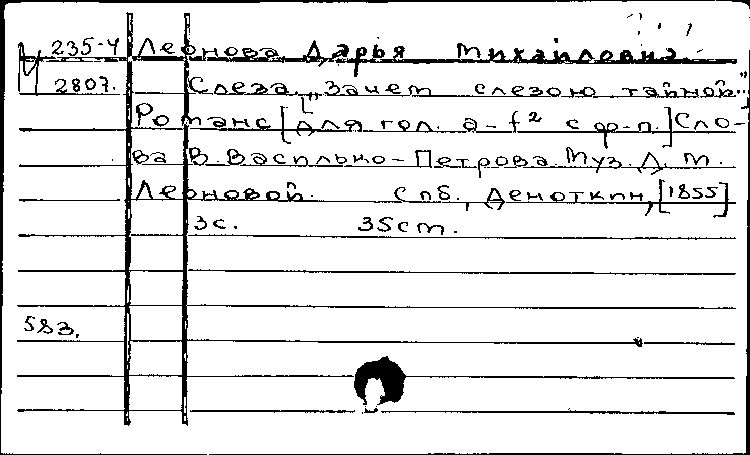 235-4 Леонова, Дарья Михайловна.
2807. Слеза. [„Зачем слезою тайной..."]
Романс [для гол. a-f² с ф-п.] Сло-
ва В. Васплько-Петрова. Муз. Д. М.
Леоновой. Спб., Деноткин, [1855]
3с. 35ст.
583.